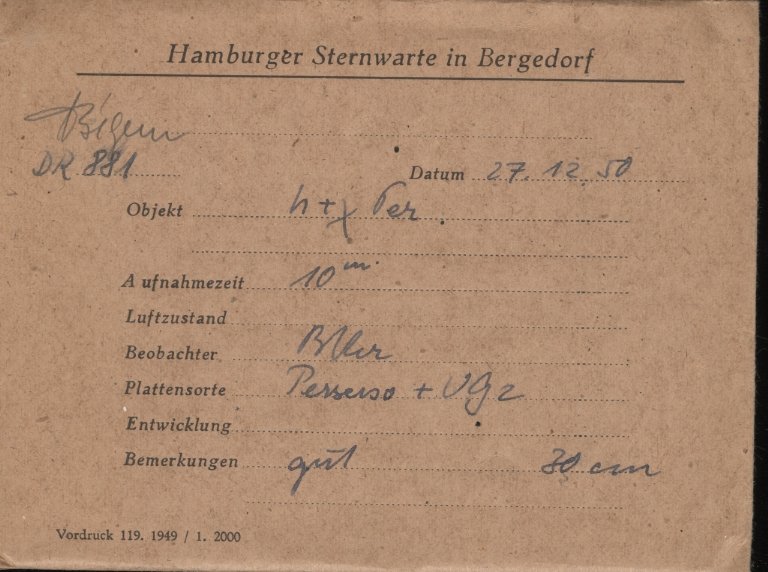 Hamburger Sternwarte in Bergedorf
DR 881
Datum 27. 12. 50
Objekt h + χ Per
Aufnahmezeit 10 m.
Luftzustand
Beobachter
Plattensorte + VG2
Entwicklung
Bemerkungen gut 30 cm
Vordruck 119. 1949 / 1. 2000